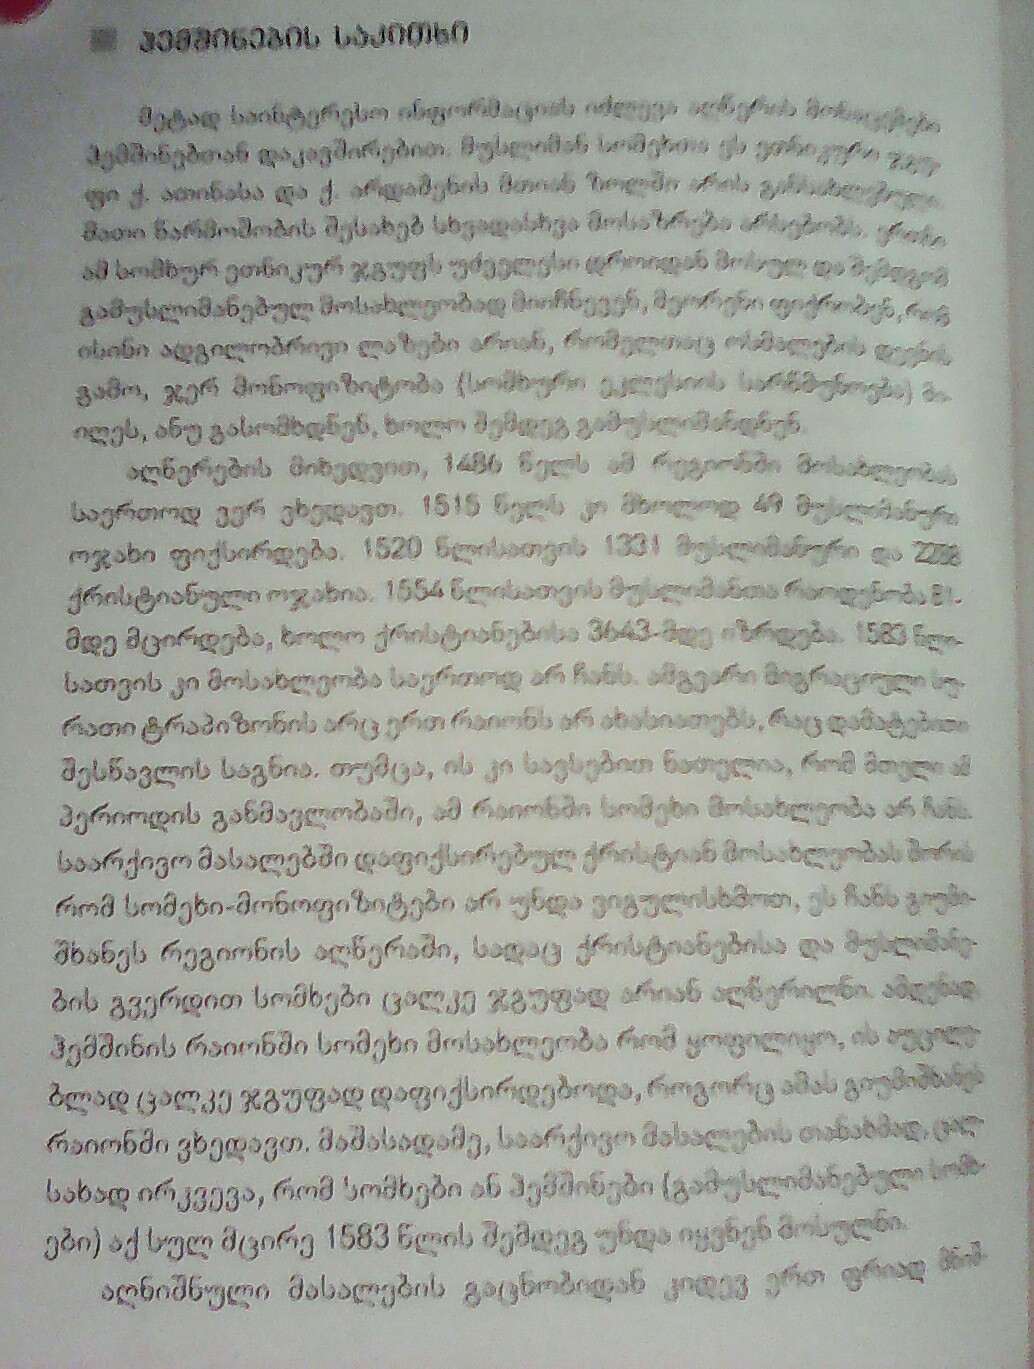 ჰემშინების საკითხი
მეტად საინტერესო ინფორმაციას იძლევა აღწერის მონაცემები
ჰემშინებთან დაკავშირებით. მუსლიმან სომეხთა ეს ეთნიკური ჯგუ-
ფი ქ. ათინასა და ქ. არდაშენის მთიან ზოლში არის განსახლებული.
მათი წარმოშობის შესახებ სხვადასხვა მოსაზრება არსებობს. ერთნი
ამ სომხურ ეთნიკურ ჯგუფს უძველესი დროიდან მოსულ და შემდგომ
გამუსლიმანებულ მოსახლეობად მიიჩნევენ, მეორენი ფიქრობენ, რომ
ისინი ადგილობრივი ლაზები არიან, რომელთაც ოსმალების
გამო, ჯერ მონოფიზიტობა (სომხური ეკლესიის სარწმუნოება) მი-
იღეს, ანუ გასომხდნენ, ხოლო შემდეგ გამუსლიმანდნენ.
აღწერების მიხედვით, 1486 წელს ამ რეგიონში მოსახლეობას
საერთოდ ვერ ვხედავთ. 1515 წელს კი მხოლოდ 49 მუსლიმანური
ოჯახი ფიქსირდება. 1520 წლისათვის 1331 მუსლიმანური და
ქრისტიანული ოჯახია. 1554 წლისათვის მუსლიმანთა რაოდენობა 81-
მდე მცირდება, ხოლო ქრისტიანებისა 3643-მდე იზრდება. 1583 წლი-
სათვის კი მოსახლეობა საერთოდ არ ჩანს. ამგვარი მიგრაციული სუ-
რათი ტრაპიზონის არც ერთ რაიონს არ ახასიათებს, რაც დამატებითი
შესწავლის საგნია. თუმცა, ის კი სავსებით ნათელია, რომ მთელი ამ
პერიოდის განმავლობაში, ამ რაიონში სომეხი მოსახლეობა არ ჩანს.
საარქივო მასალებში დაფიქსირებულ ქრისტიან მოსახლეობას შორის
რომ სომეხი-მონოფიზიტები არ უნდა ვიგულისხმოთ, ეს ჩანს გიუმი-
შხანეს რეგიონის აღწერაში, სადაც ქრისტიანებისა და მუსლიმანე-
ბის გვერდით სომხები ცალკე ჯგუფად არიან აღწერილნი. ამდენად,
ჰემშინის რაიონში სომეხი მოსახლეობა რომ ყოფილიყო, ის აუცილე-
ბლად ცალკე ჯგუფად დაფიქსირდებოდა, როგორც ამას გიუმიშხანეს
რაიონში ვხედავთ. მაშასადამე, საარქივო მასალების თანახმად, ცალ-
სახად ირკვევა, რომ სომხები ან ჰემშინები (გამუსლიმანებული სომხ-
ები) აქ სულ მცირე 1583 წლის შემდეგ უნდა იყვნენ მოსულნი.
აღნიშნული მასალების გაცნობიდან კიდევ ერთ ფრიად მნიშ-